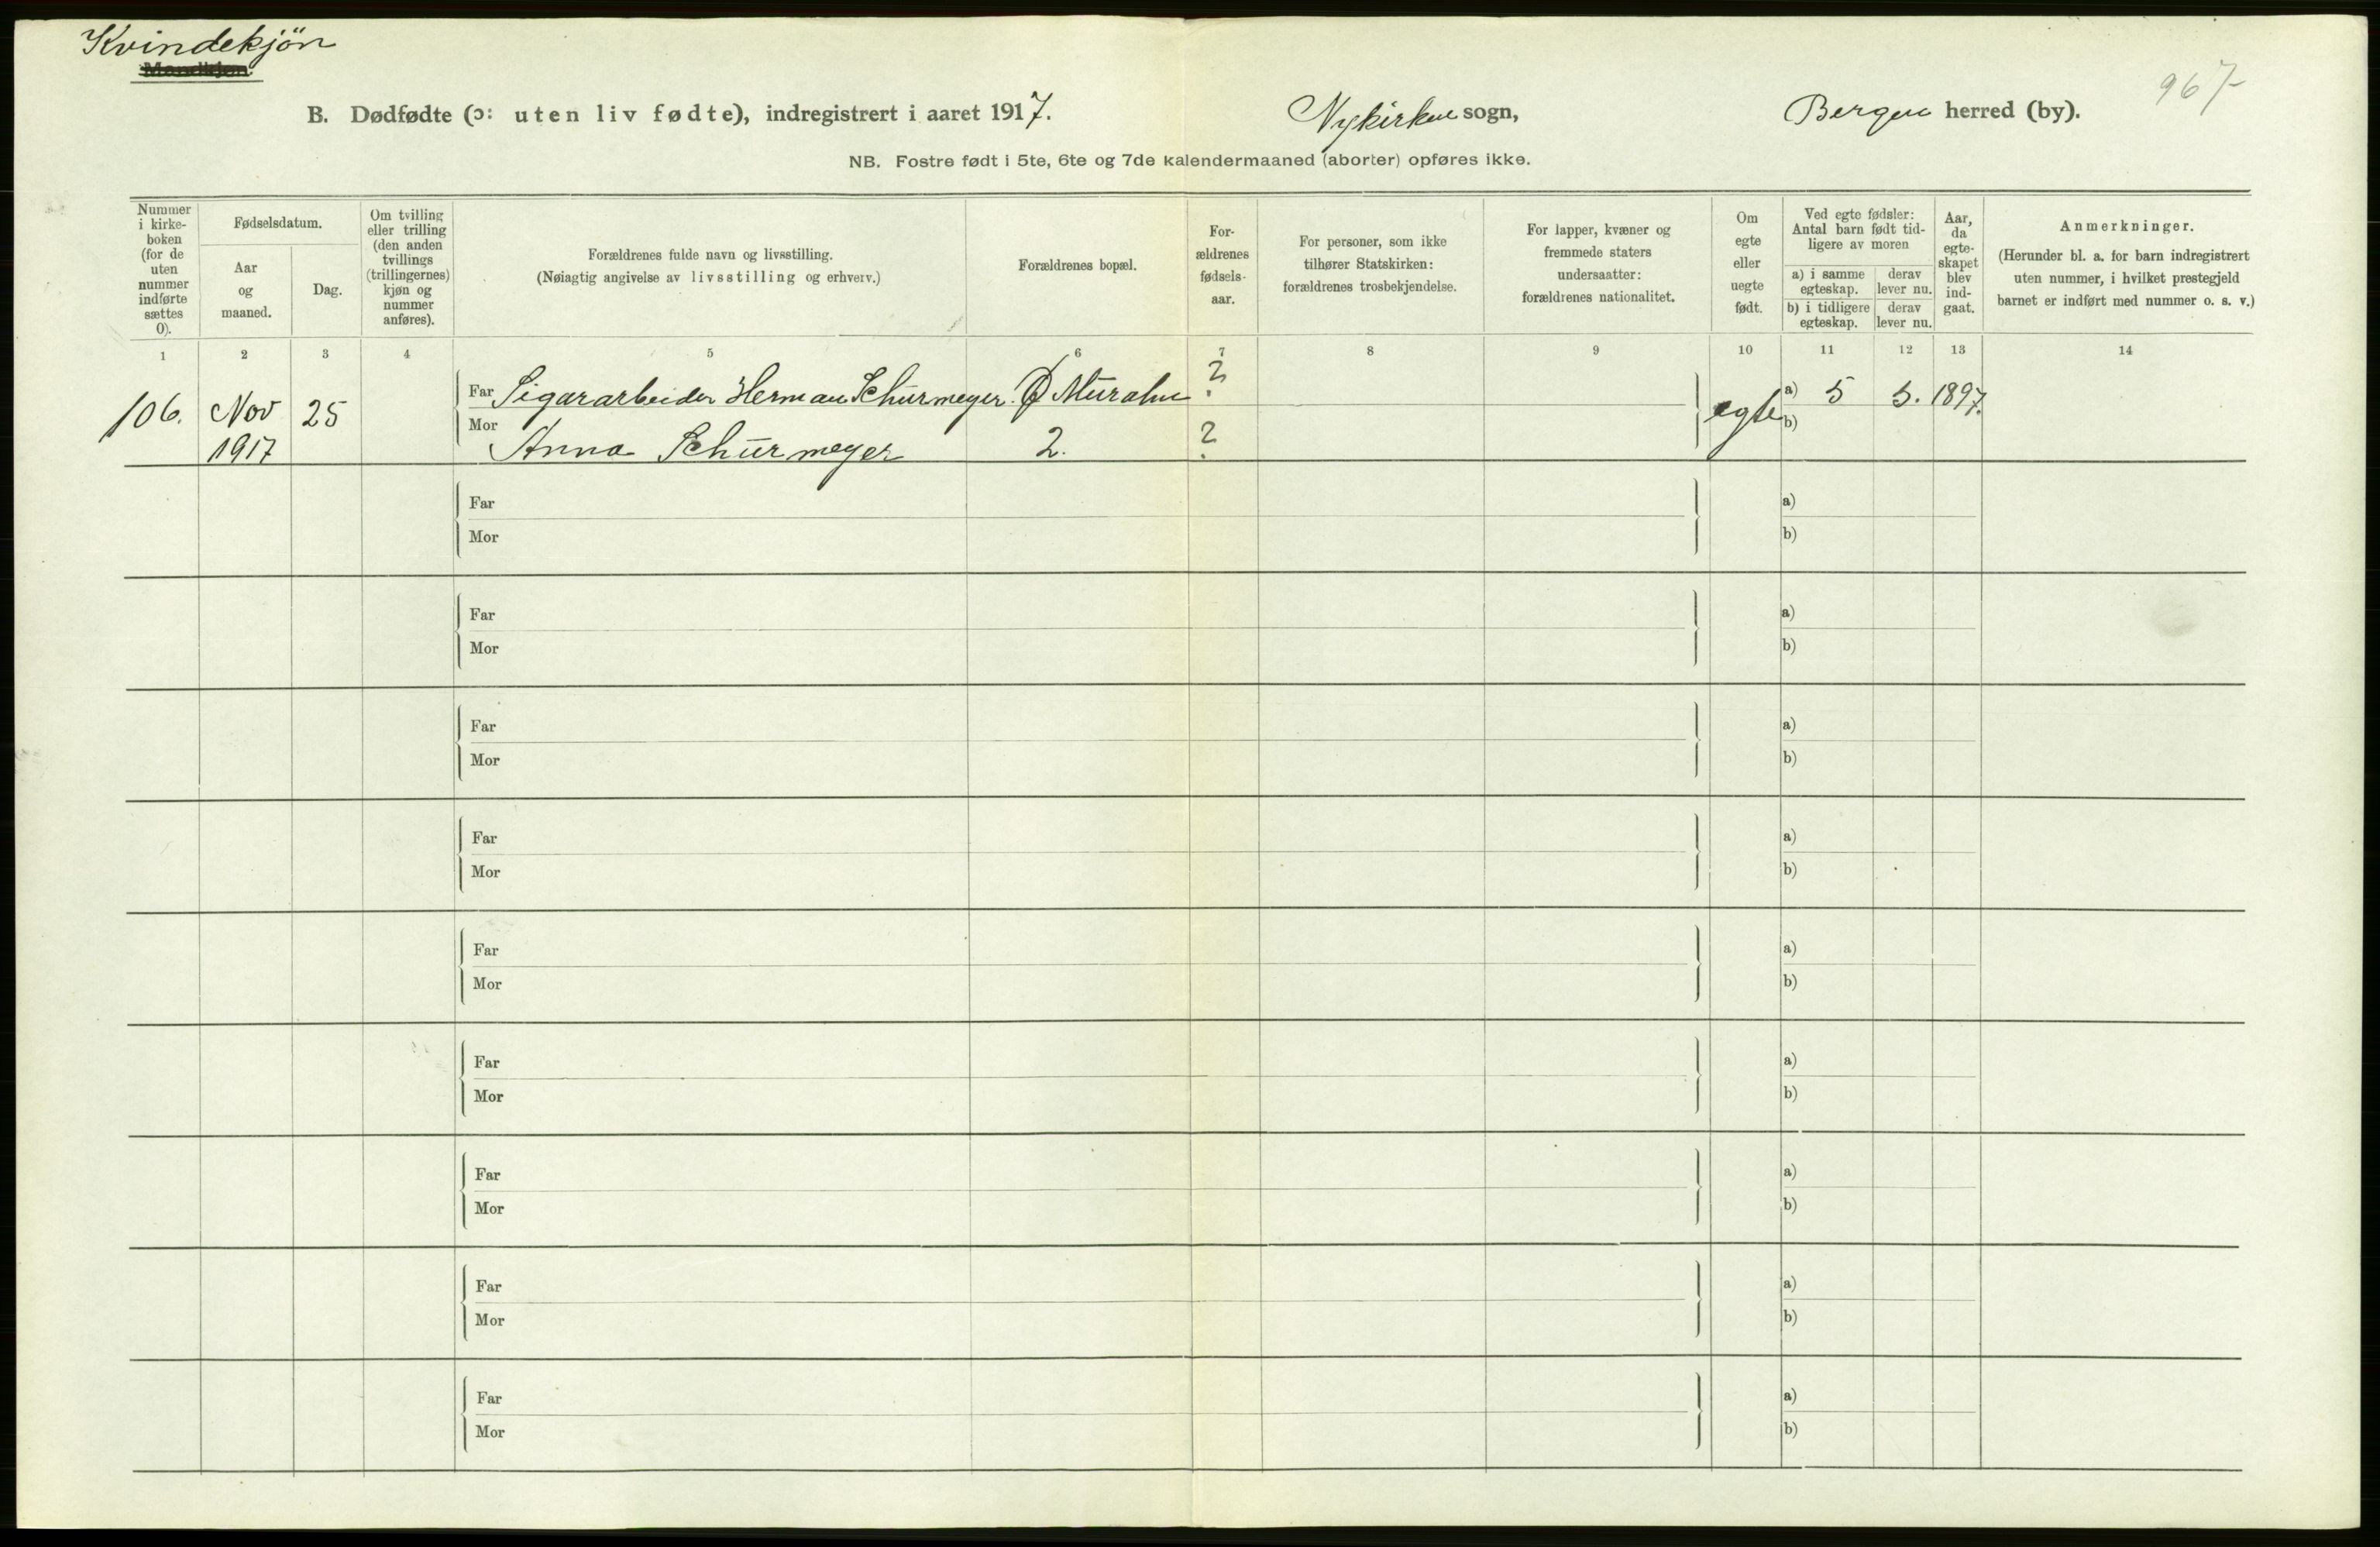 Kvindekjön
Mandkjøn.
967
B. Dødfødte (ɔ: uten liv fødte), indregistrert i aaret 1917. Nykirken sogn, Bergen herred (by).
NB. Fostre født i 5te, 6te og 7de kalendermaaned (aborter) opføres ikke.
Nummer i kirke-boken (for de uten nummer indførte sættes 0).
Fødselsdatum.
Aar og maaned.
Dag.
Om tvilling eller trilling (den anden tvillings (trillingernes) kjøn og nummer anføres).
Forældrenes fulde navn og livsstilling.
(Nøiagtig angivelse av livsstilling og erhverv.)
Forældrenes bopæl.
For-ældrenes fødsels-aar.
For personer, som ikke tilhører Statskirken: forældrenes trosbekjendelse.
For lapper, kvæner og fremmede staters undersaatter: forældrenes nationalitet.
Om egte eller uegte født.
Ved egte fødsler: Antal barn født tid-ligere av moren
a) i samme egteskap. derav lever nu.
b) i tidligere egteskap. derav lever nu.
Aar, da egte-skapet blev ind-gaat.
Anmerkninger.
(Herunder bl. a. for barn indregistrert uten nummer, i hvilket prestegjeld barnet er indført med nummer o. s. v.)
1 2 3 4 5 6 7 8 9 10 11 12 13 14
106. Nov 25 Far Sigararbeider Herman Schürmeyer. ? egte a) 5 5. 1897.
1917 Mor Anna Schürmeyer 2. ? b)
Far a)
Mor b)
Far a)
Mor b)
Far a)
Mor b)
Far a)
Mor b)
Far a)
Mor b)
Far a)
Mor b)
Far a)
Mor b)
Far a)
Mor b)
Far a)
Mor b)